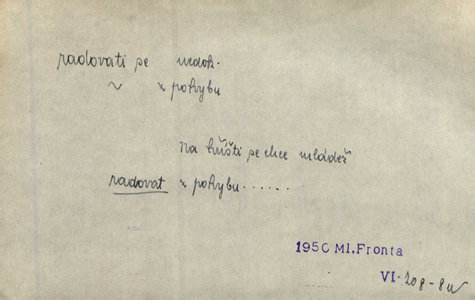 radovati se nedok.
~ z pohybu
Na hřišti se chce mládež
radovat z pohybu......
1950 Ml.Fronta
VI. 208-8